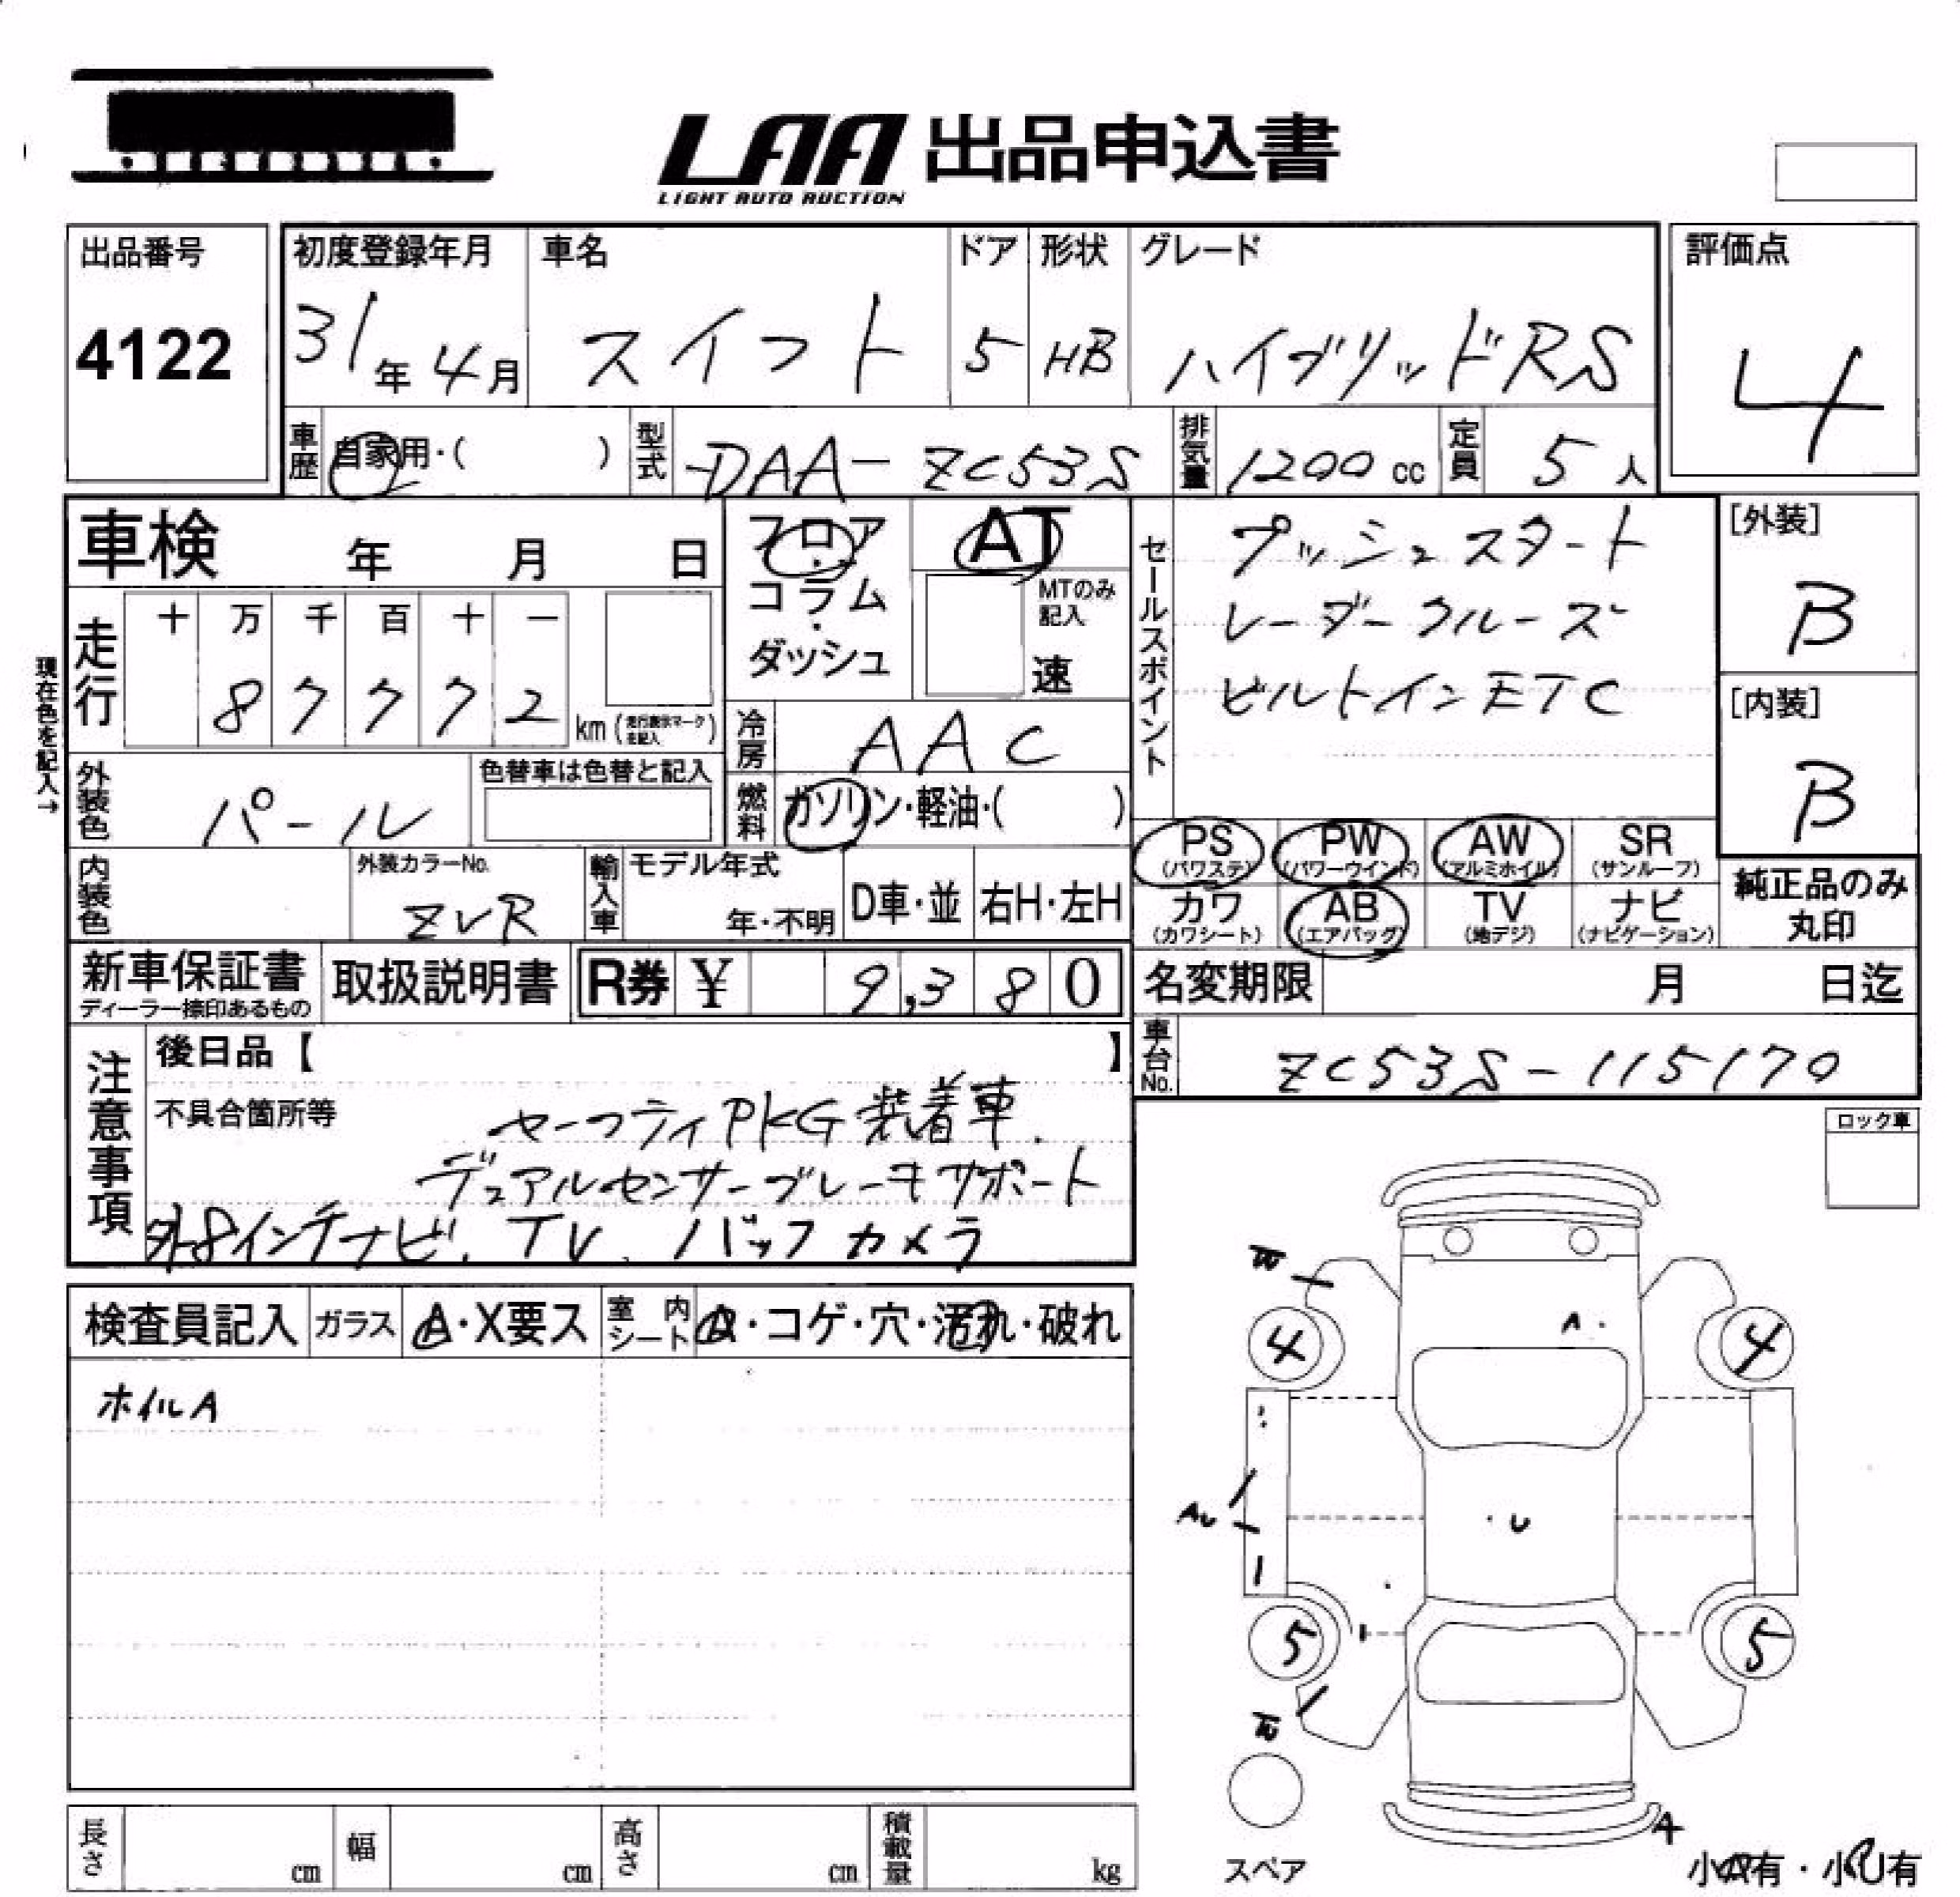 LAA 出品申込書
LIGHT AUTO AUCTION
出品番号
4122
初度登録年月
31年4月
車名
スイフト
ドア
5
形状
HB
グレード
ハイブリッドRS
評価点
4
車歴
自家用・( )
型式
DAA-ZC53S
排気量
1200 cc
定員
5人
車検 年 月 日
フロア・コラム・ダッシュ
AT
MTのみ記入
速
セールスポイント
プッシュスタート
レーダークルーズ
ビルトインETC
[外装]
B
[内装]
B
現在色を記入→
走行
十 万 千 百 十 一
8 7 7 7 2
km (走行表示マークを記入)
冷房
AAC
外装色
パール
色替車は色替と記入
燃料
ガソリン・軽油・( )
PS
(パワステ)
PW
(パワーウインド)
AW
(アルミホイル)
SR
(サンルーフ)
カワ
(カワシート)
AB
(エアバッグ)
TV
(地デジ)
ナビ
(ナビゲーション)
純正品のみ丸印
内装色
外装カラーNo.
ZVR
輸入車
モデル年式
年・不明
D車・並
右H・左H
新車保証書
ディーラー捺印あるもの
取扱説明書
R券 ¥ 9,380
名変期限 月 日迄
車台No.
ZC53S-115170
注意事項
後日品【 】
不具合箇所等
セーフティPKG装着車.
デュアルセンサーブレーキサポート
外8インチナビ. TV. バックカメラ
ロック車
検査員記入
ガラス
A・X要ス
室内シート
・コゲ・穴・汚れ・破れ
ホイルA
4
4
A
AU
U
5
5
A
スペア
小A有・小U有
長さ cm
幅 cm
高さ cm
積載量 kg